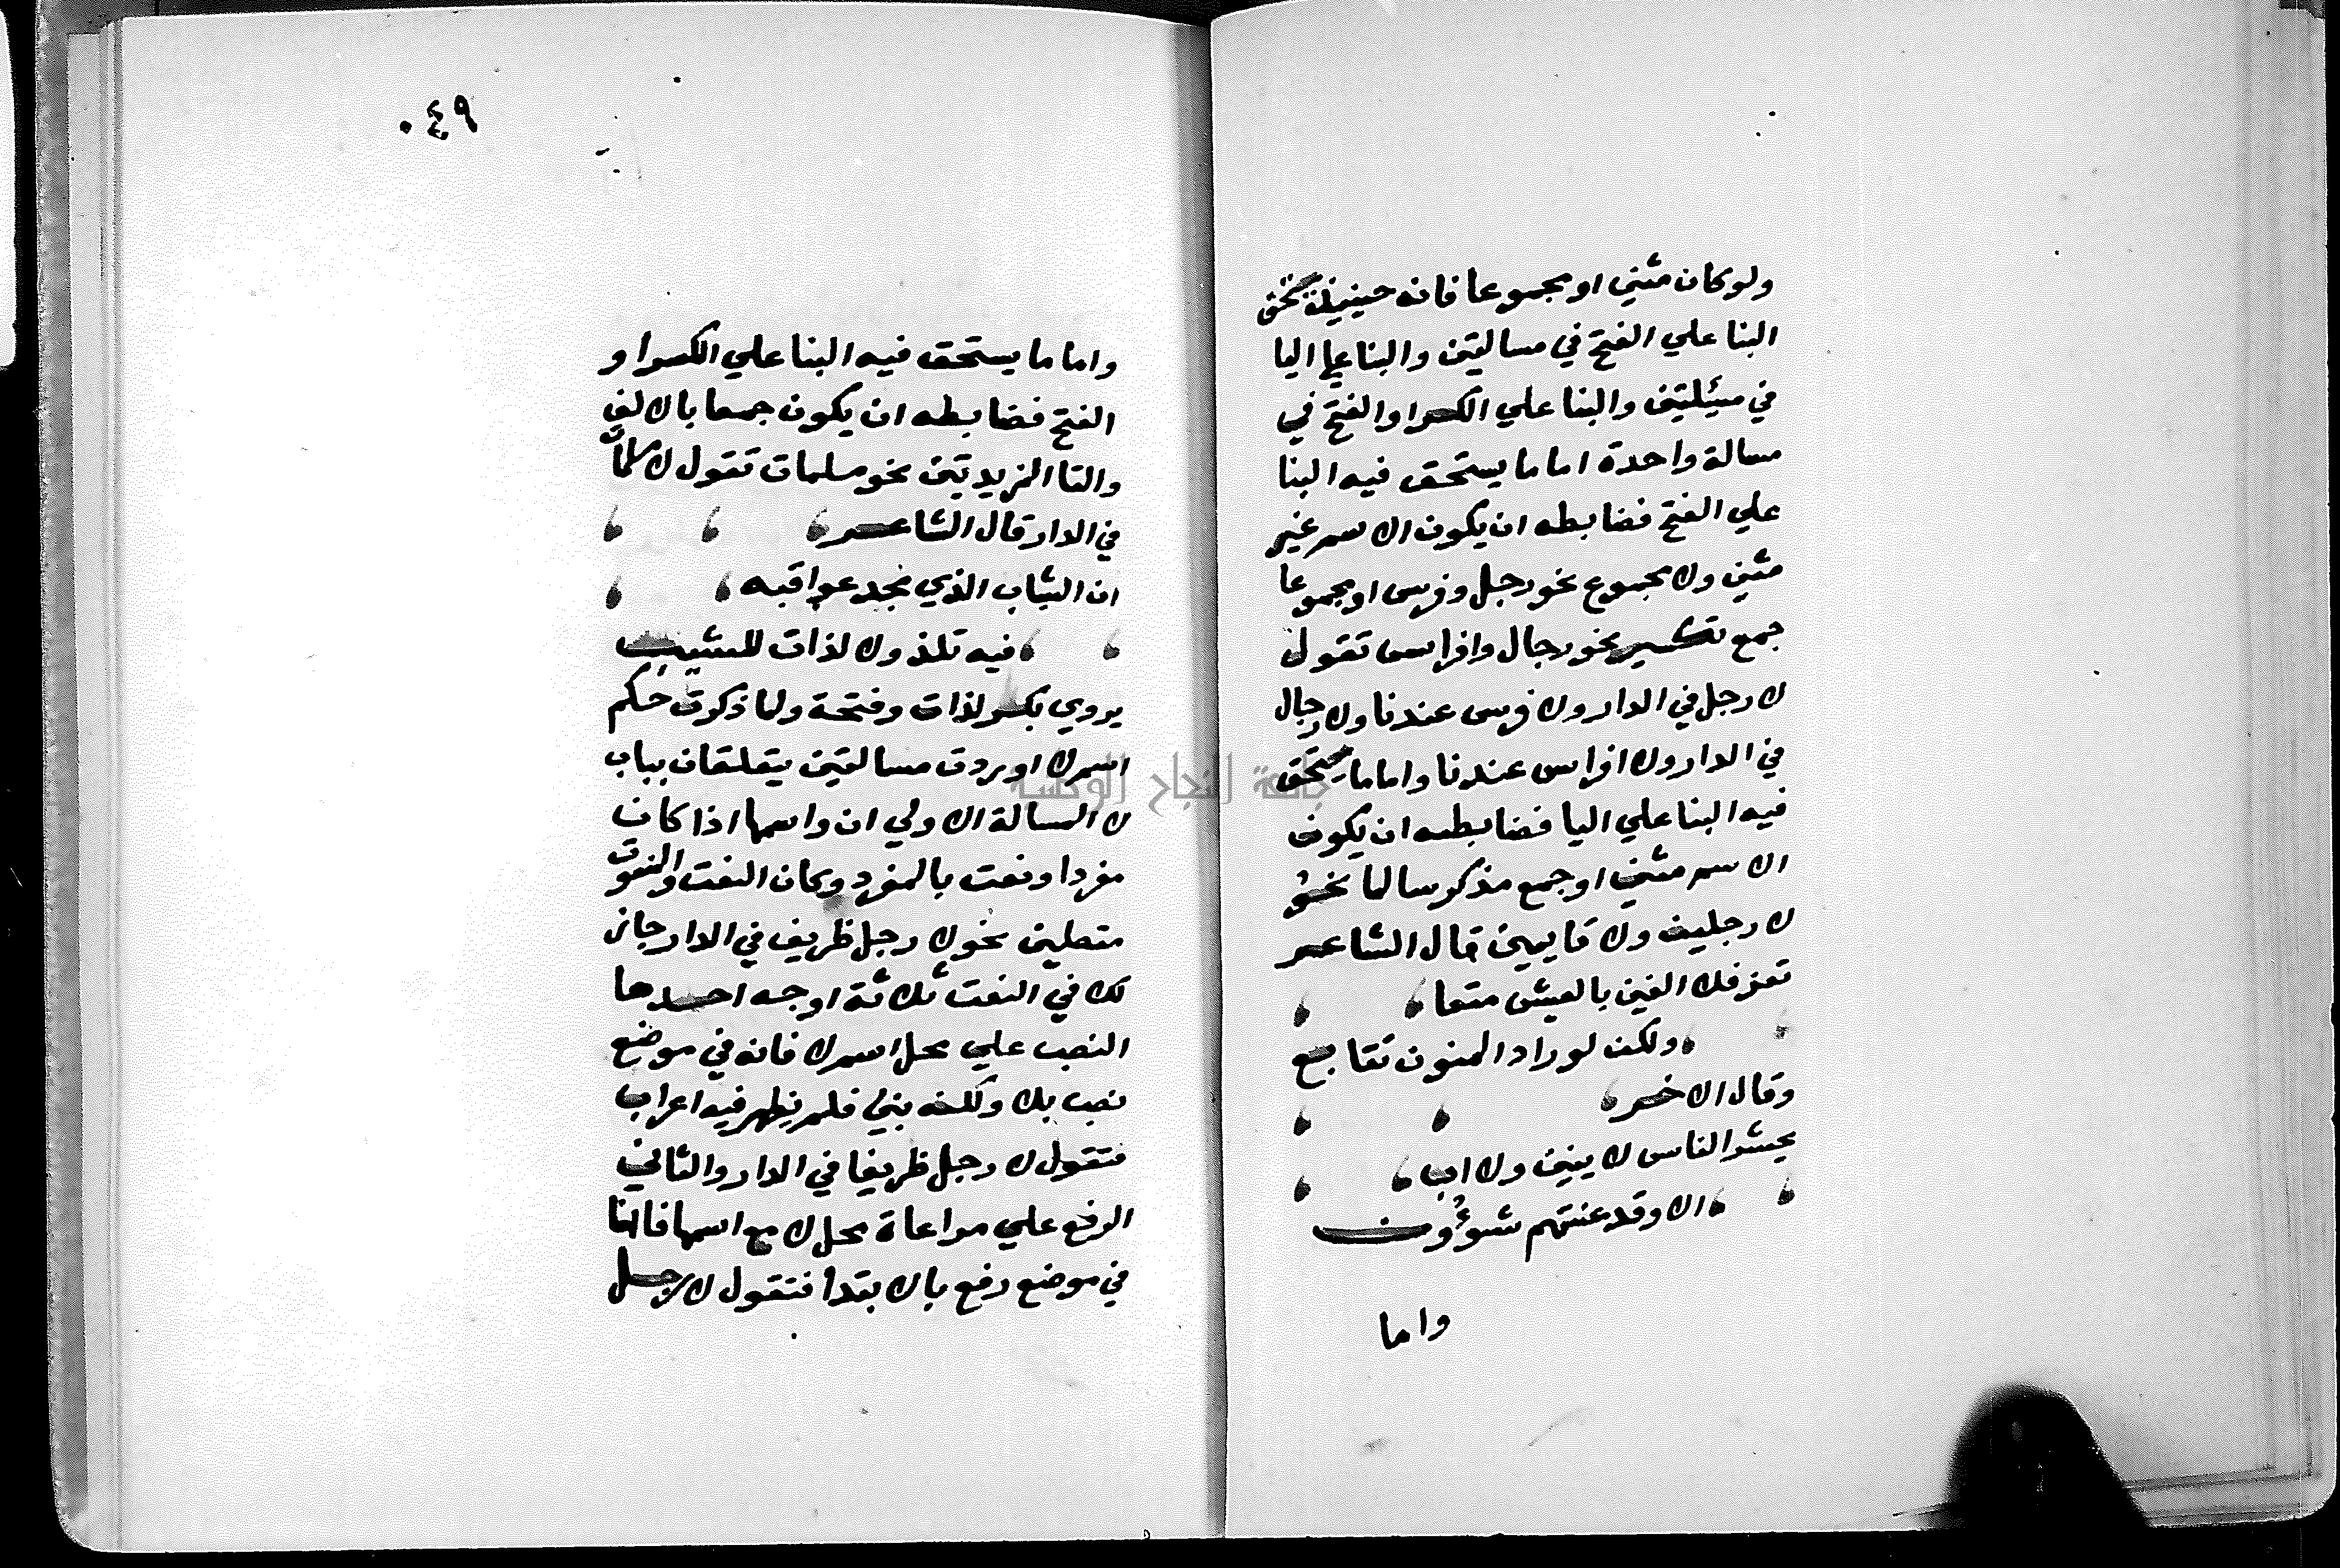 ولو كان مثني او مجموعا فانه حينيذ يستحق
البنا علي الفتح في مسالتين والبنا علي اليا
في مسئلتين والبنا علي الكسر او الفتح في
مسالة واحدة اما ما يستحق فيه البنا
علي الفتح فضابطه ان يكون الاسم غير
مثني ولا مجموع نحو رجل وفرس او مجموعا
جمع تكسير نحو رجال وافراس تقول
لا رجل في الدار ولا فرس عندنا ولا رجال
في الدار ولا افراس عندنا واما ما يستحق
فيه البنا علي اليا فضابطه ان يكون
الاسم مثني او جمع مذكر سالما نحو
لا رجلين ولا قايمين قال الشاعر
تعز فلا الفين بالعيش متعا
ولكن لوراد المنون تتابع
وقال الاخر
يحشر الناس لا بنين ولا اب
الا وقد عنتهم شؤون
واما
٠٤٩
واما ما يستحق فيه البنا علي الكسر او
الفتح فضابطه ان يكون جمعا بالالف
والتا المزيدتين نحو مسلمات تقول لا مسلمات
في الدار قال الشاعر
ان الشباب الذي مجد عواقبه
فيه نلذ ولا لذات للشيب
يروي بكسر لذات وفتحة ولما ذكرت حكم
اسم لا اوردت مسالتين يتعلقان بباب
لا المسالة الاولي ان واسمها اذا كان
مفردا ونعت بالمفرد وكان النعت والمنعوت
متصلين نحو لا رجل ظريف في الدار جاز
لك في النعت ثلاثة اوجه احدها
النصب علي محل اسم لا فانه في موضع
نصب بلا ولكنه بني فلم يظهر فيه اعراب
فتقول لا رجل ظريفا في الدار والثاني
الرفع علي مراعاة محل لا مع اسمها فانها
في موضع رفع بالابتدا فتقول لا رجل
جامعة النجاح الوطنية